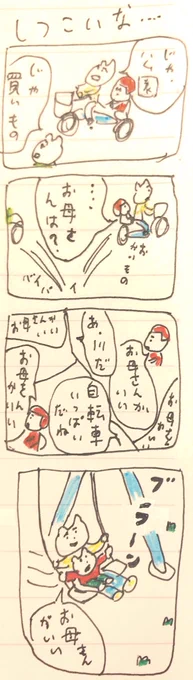 しつこいな…
じゃ、
いくね
じゃ
買いもの
お
かいもの
…
お母さ
んは?
バイバーイ
お母さんが
いい
あ、川だ
お母さんがいい
自転車
いっぱい
だね
お母さん
がいい
ブラーン
お母さん
がいい